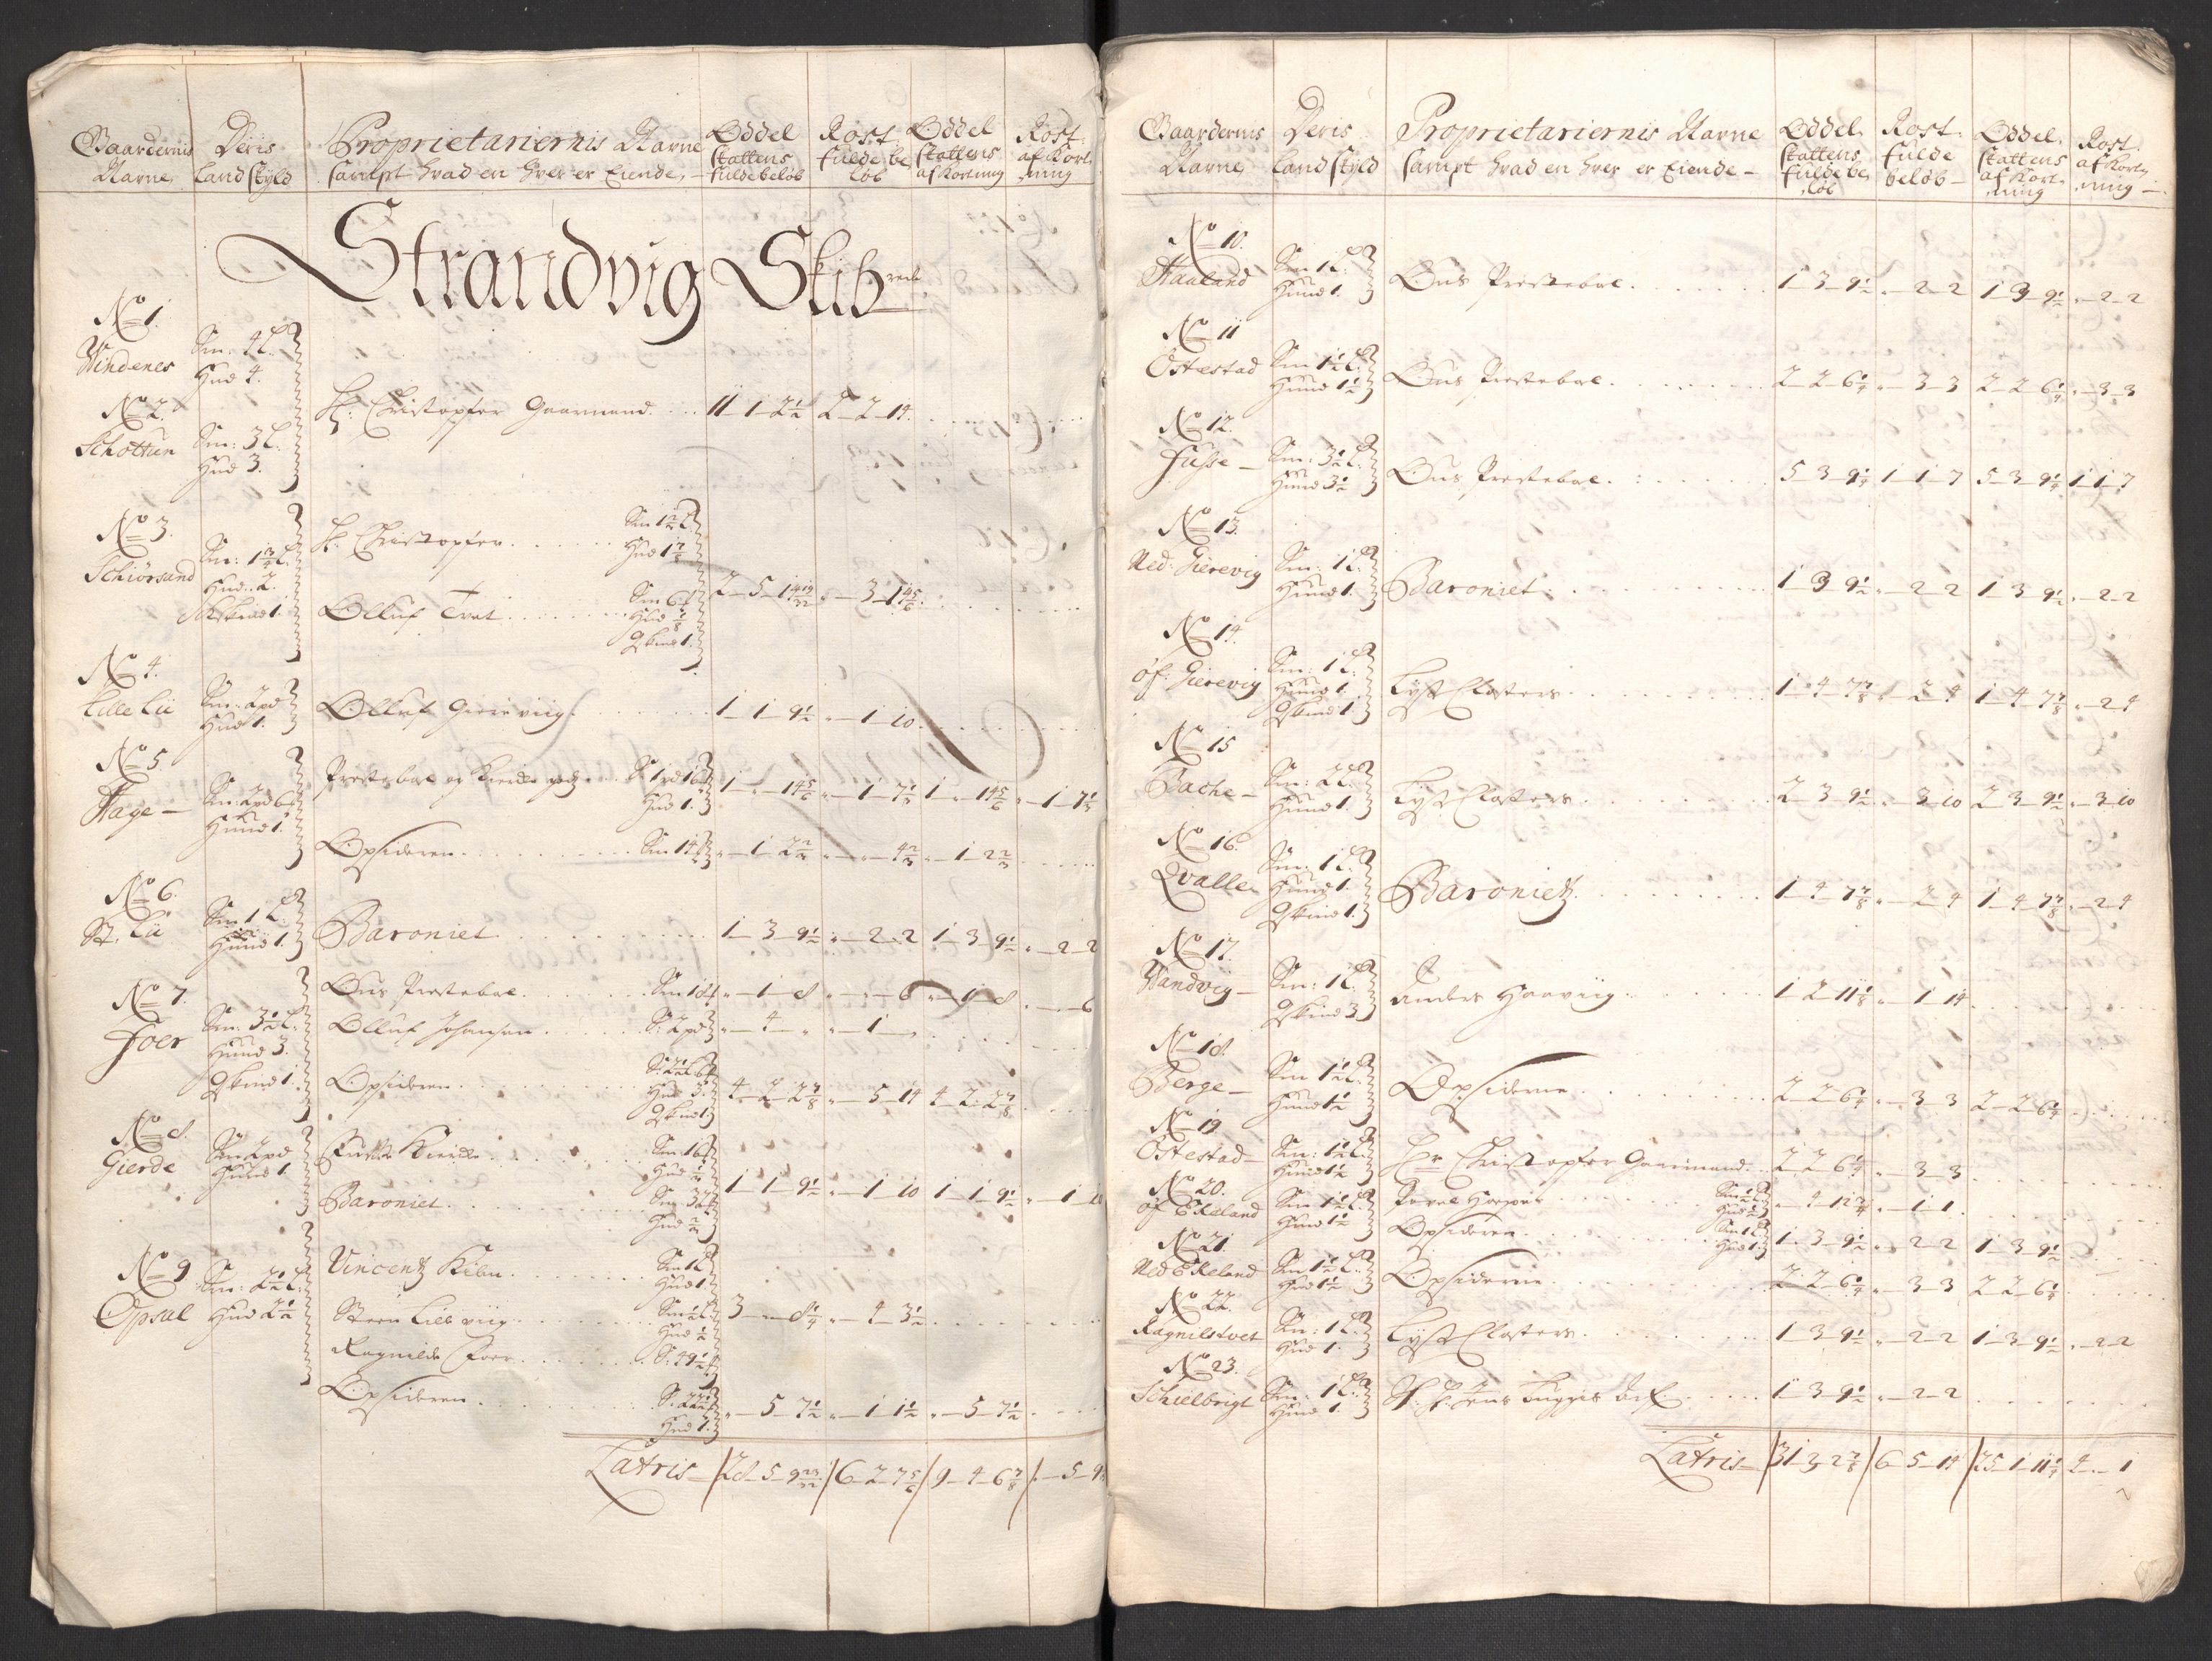 Gaardernis Nafne
Deris Landskyld
Proprietariernis Nafne sampt hvad en hver er Eiende
Oddel skattens fulde beløb
Rost fulde be løb
Oddel skattens afkortning
Rost afkortning
Strandvig Skib rede
No 1.
Windenes
Sm: 4 L.
Hud 4.
No 2.
Schottun
Sm: 3 L.
Hud 3.
Hr: Christopher Gaarmand 11 1 2½ 2 2 14
No 3.
Schiørsand
Sm: 1¾ L.
Hud 2.
Hr: Christopher
Olluf Tvet
No 4.
Lille Lii
Sm: 2 pd
Hud 1.
Olluf Gierevig 1 1 9½ 1 10
No 5.
Hage
Sm: 2 pd 6
Hund 1.
Opsideren 1 2⅔ 4⅔ 1 2⅔
No 6.
St. Lii
Sm 1 L.
Hund 1.
Baroniet 1 3 9½ 2 2 1 3 9½ 2 2
No 7.
Foer
Sm: 3½ L.
Hund 3.
Gskind 1.
Ous Prestebol 1 8 6 1 8 6
Olluf Johansen S: 2 pd 4 1
Opsideren 4 2 2⅞ 5 14 4 2 2⅞
No 8.
Gierde
Sm 2 pd
Hund 1
Baroniet 1 1 9½ 1 10 1 1 9½
No 9
Opsal
Sm: 2½ L.
Hud 2½
Vincentz Kiln Sm 1 L Hud 1
Steen Lieb viig
Ragnilde Foer
Opsideren 5 7½ 1 1½ 5 7½
Latris 28 5 9 6 2 7⅚ 9 4 6⅞ 5 9
Gaardernis Nafne
Deris Landskyld
Proprietariernis Nafne sampt hvad en hver er Eiende
Oddel skattens fulde be løb
Rost fulde beløb
Oddel skattens afkortning
Rost afkortning
No 10.
Haaland
Sm 1 L.
Hund 1.
Ous Prestebol 1 3 9½ 2 2 1 3 9½ 2 2
No 11
Østestad
Sm 1½ L.
Hund 1½
Ous Prestebol 2 2 6¼ 3 3 2 2 6¼ 3 3
No 12.
Fusse
Sm: 3½ L.
Hund 3½
Ous Prestebol 5 3 9¼ 1 1 7 5 3 9¼ 1 1 7
No 13.
Ned: Gierevig
Sm: 1 L.
Hund 1.
Baroniet 1 3 9½ 2 2 1 3 9½ 2 2
No 14.
Øf: Gierevig
Sm: 1 L.
Hund 1.
Gskind 1
Lyse Closters 1 4 7⅞ 2 4 1 4 7⅞ 2 4
No 15
Bache
Sm: 2 L.
Hund 1.
Lyse Closters 2 3 9½ 3 10 2 3 9½ 3 10
No 16.
Qvalle
Sm: 1 L.
Hund 1.
Gskind 1.
Baronietz 1 4 7⅞ 2 4 1 4 7⅞ 2 4
No 17.
Wandvig
Sm: 1 L.
Gskind 3
Anders Haaviig 1 2 11⅛ 1 14
No 18.
Berge
Sm 1½ L.
Hund 1½
Opsiderne 2 2 6¼ 3 3 2 2 6¼
No 19
Østestad
Sm: 1½ L.
Hund 1½
Hr Christopher Gaarmand 2 2 6¼ 3 3
No 20.
Øf Ekeland
Sm: 1½ L.
Hund 1½
Opsideren Sm 1 L Hud 1 1 3 9½ 2 2 1 3 9½
No 21.
Ned Ekeland
Sm 1½ L.
Hud 1½
Opsiderne 2 2 6¼ 3 3 2 2 6¼
No 22.
Ragnilstvet
Sm: 1 L.
Hud 1.
Lyse Closters 1 3 9½ 2 2 1 3 9½ 2 2
No 23.
Schielbrigt
Sm: 1 L.
Hund 1.
1 3 9½ 2 2
Latris 31 3 2⅞ 6 5 14 25 1 11¼ 4 1